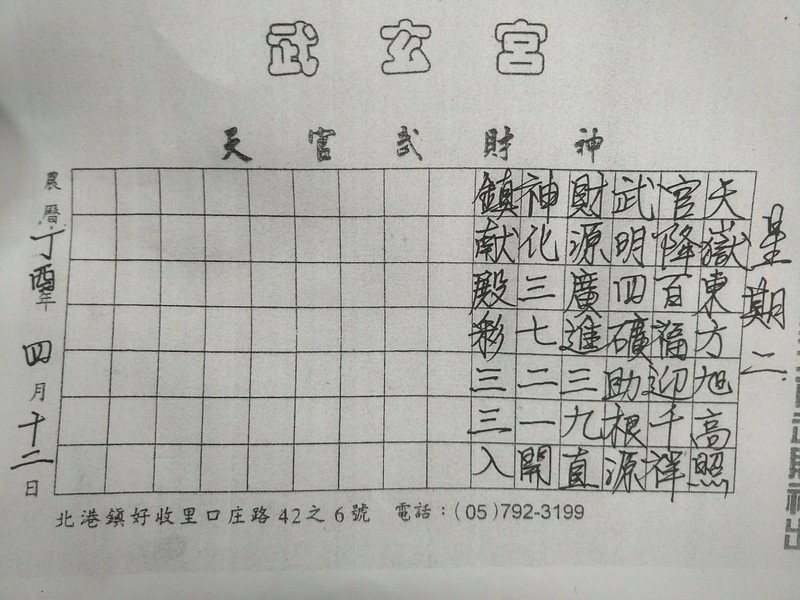 武玄宮
天官武財神
星期二
天嶽東方旭高照
官降百福迎千祥
武明四礦助根源
財源廣進三九直
神化三七二一開
鎮献殿彩三三入
農曆丁酉年四月十二日
北港鎮好收里口庄路42之6號 電話:(05)792-3199